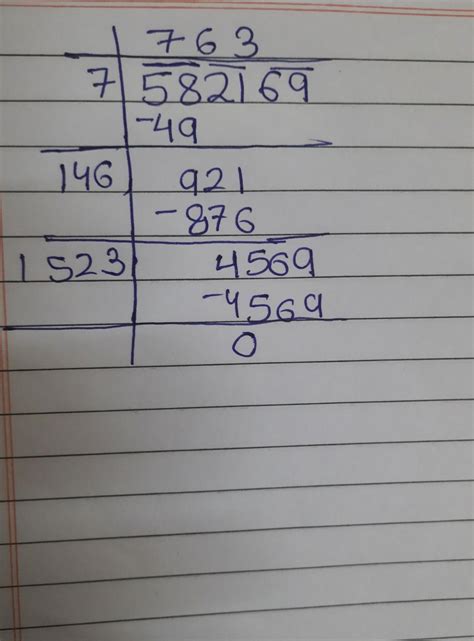 763
7 582169
-49
146 921
-876
1523 4569
-4569
0